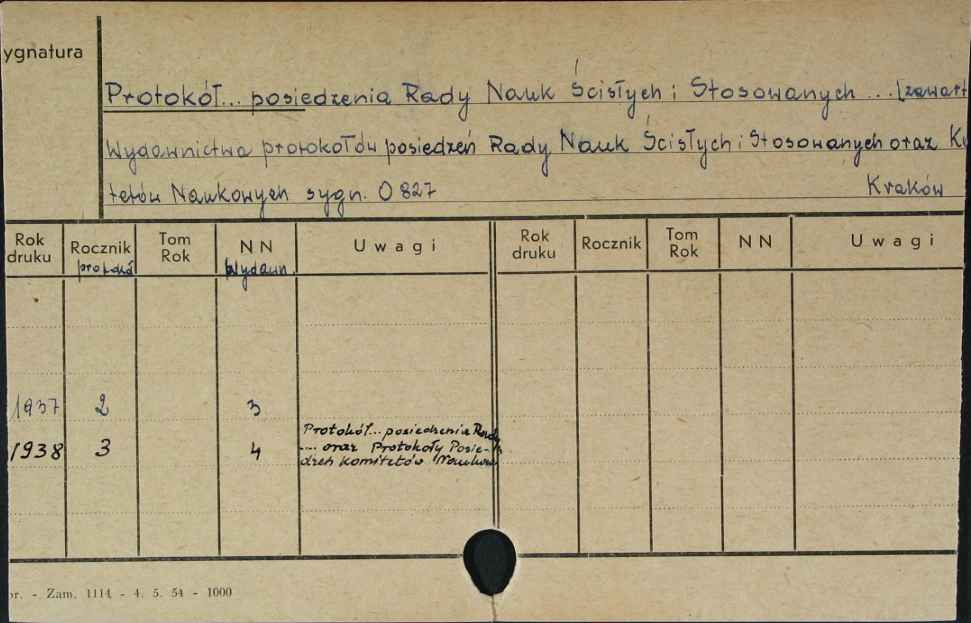 ygnatura
Protokół... posiedzenia Rady Nauk Ścisłych i Stosowanych ... [zawart
Wydawnictwa protokołów posiedzeń Rady Nauk Ścisłych i Stosowanych oraz Ko
tetów Naukowych sygn. O 827 Kraków
Rok druku Rocznik protokół Tom Rok NN Wydawn. Uwagi Rok druku Rocznik Tom Rok NN Uwagi
1937 2 3
1938 3 4 Protokół... posiedzenia Rady
.... oraz Protokoły Posie-
dzeń Komitetów Naukow
or. - Zam. 1114 - 4. 5. 54 - 1000